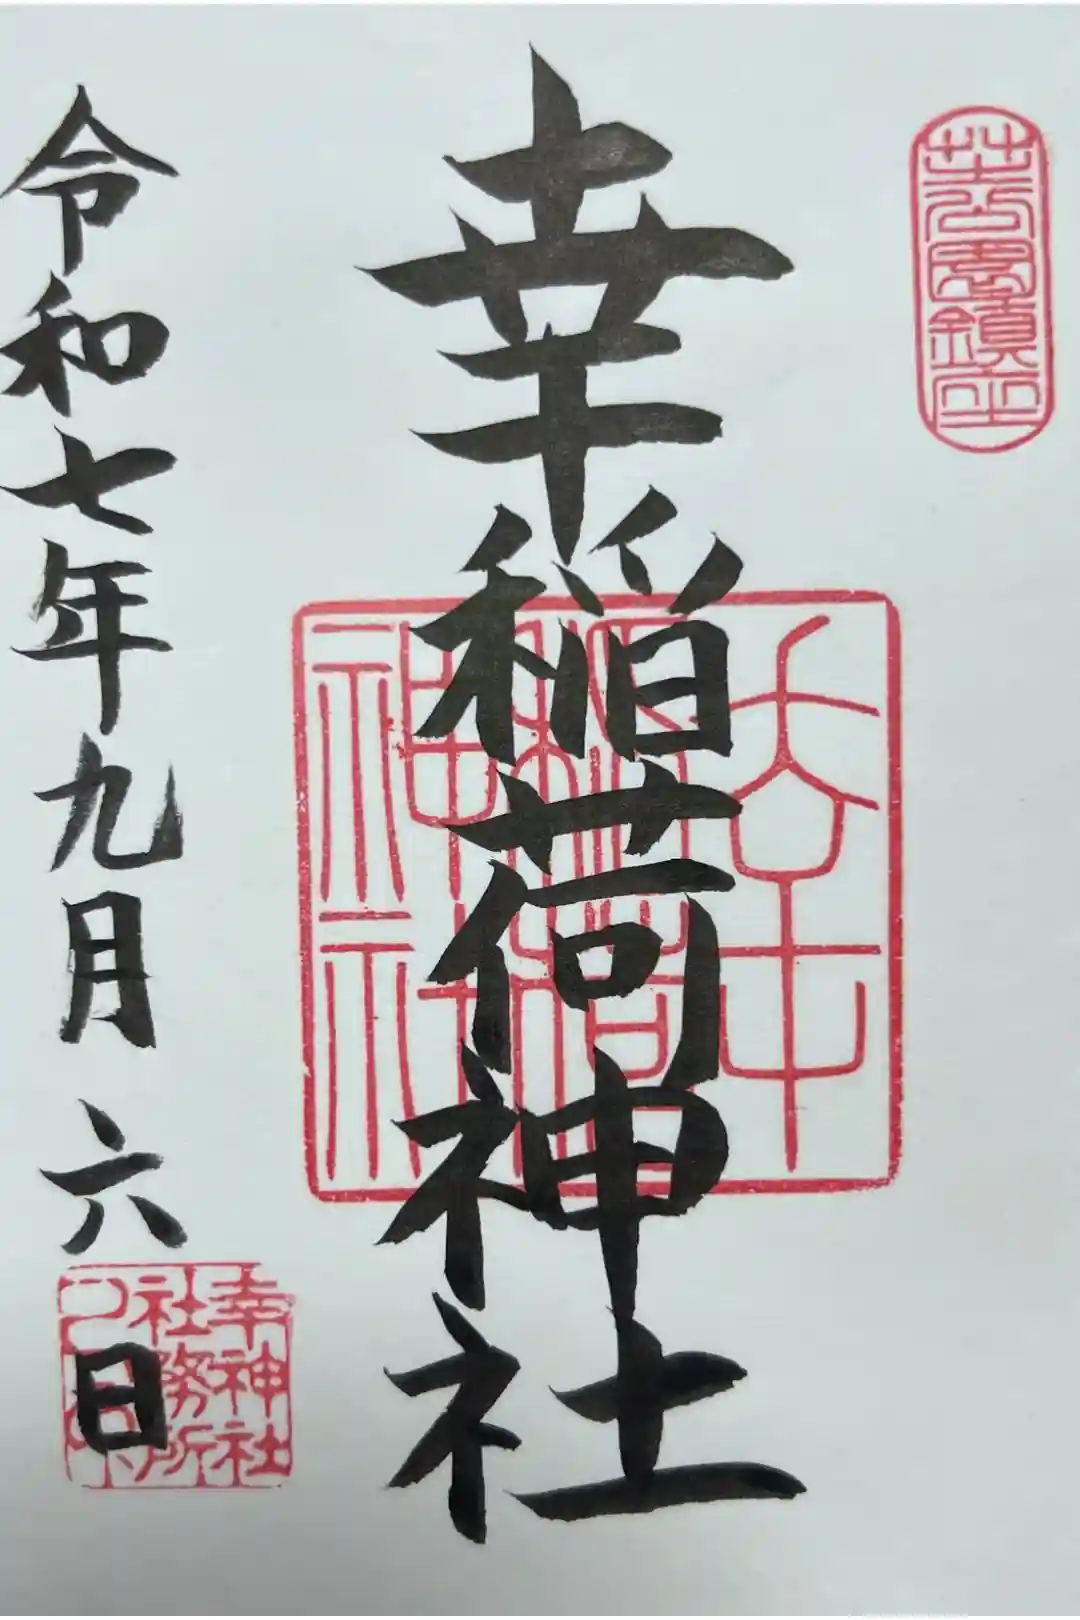 芝公園鎮座
幸稲荷神社
幸稲荷神社
令和七年九月六日
幸神社
社務所
之印